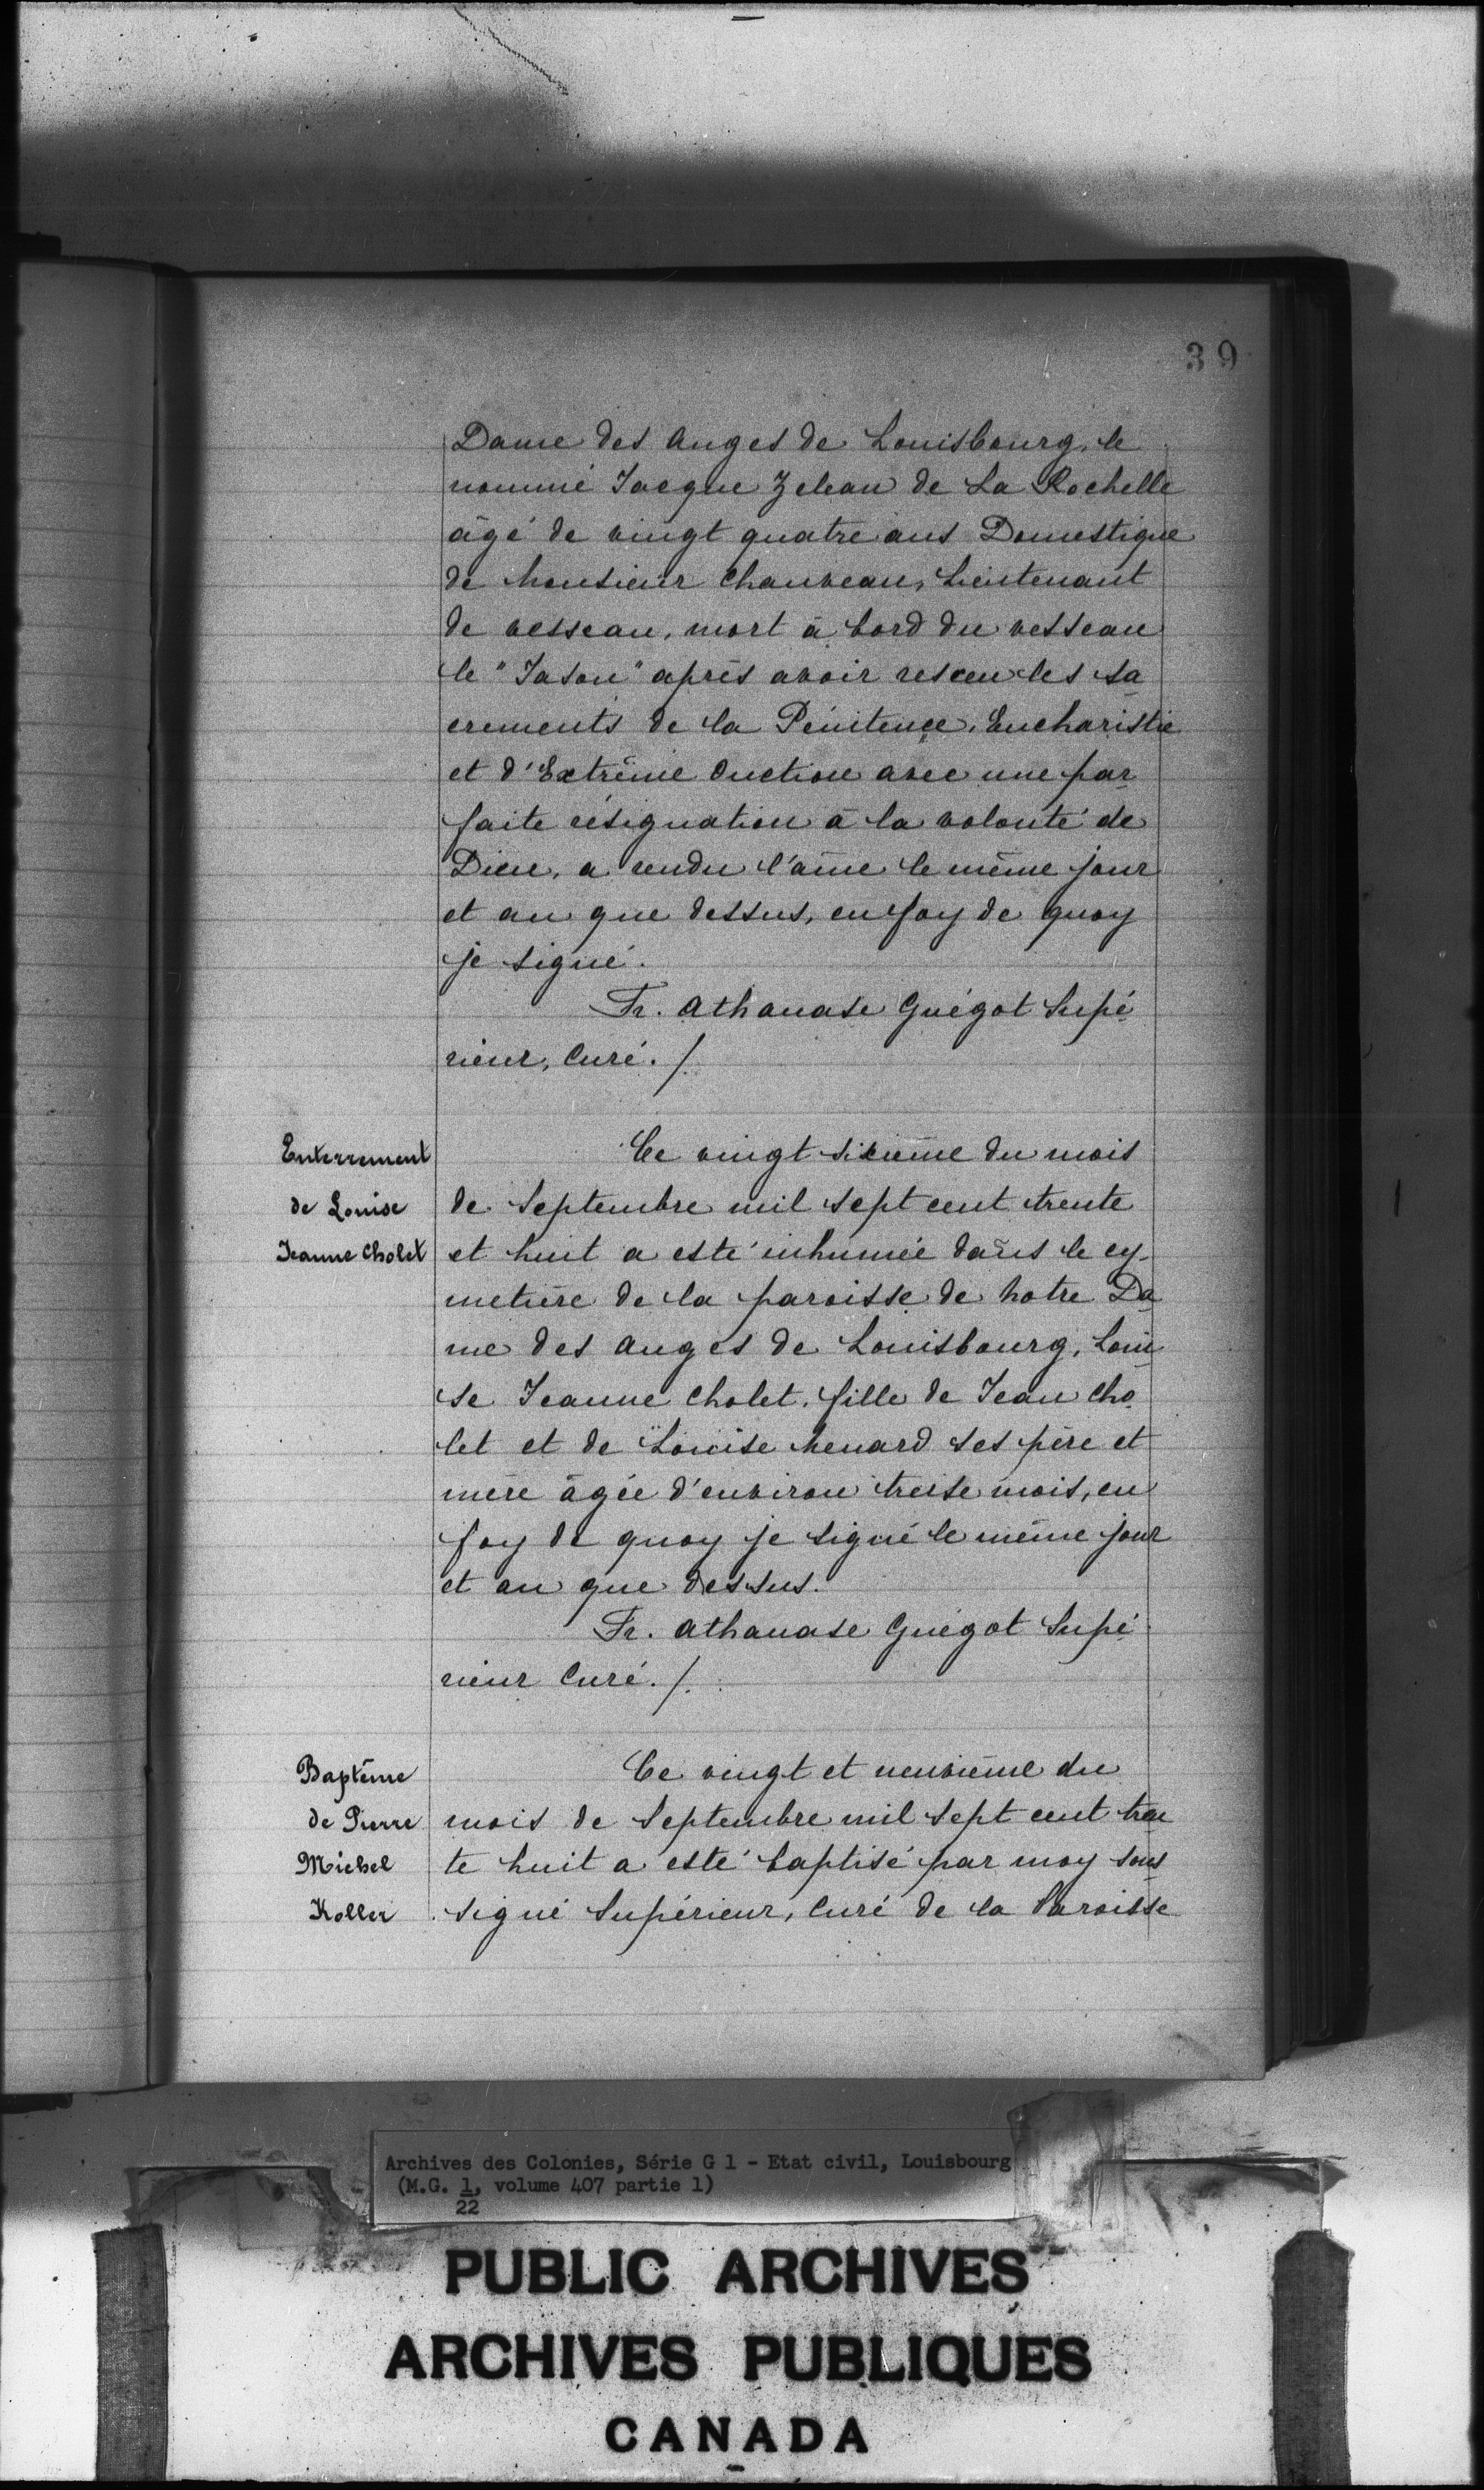 39
Dame des Anges de Louisbourg, le
nommé Jacque Zeleau de La Rochelle
âgé de vingt quatre ans Domestique
de Monsieur Chauveau, Lieutenant
de vesseau, mort à bord du vesseau
le "Jason" après avoir resceu les sa
crements de la Pénitence, Eucharistie
et d'Extrême Onction avec une par
faite résignation à la volonté de
Dieu, a rendu l'âme le même jour
et an que dessus, en foy de quoy
je signé.
Fr. Athanase Guégot Supé
rieur, Curé./.
Enterrement
de Louise
Jeanne Cholet
Ce vingt sixième du mois
de Septembre mil sept cent trente
et huit a esté inhumée dans le cy-
metière de la paroisse de Notre Da
me des Anges de Louisbourg, Loui
se Jeanne Cholet, fille de Jean Cho
let et de Louise Menard ses père et
mère âgée d'environ treise mois, en
foy de quoy je signé le même jour
et an que dessus.
Fr. Athanase Guégot Supé
rieur Curé./.
Baptême
de Pierre
Michel
Koller
Ce vingt et neuvième du
mois de Septembre mil sept cent tren
te huit a esté baptisé par moy sous
signé Supérieur, Curé de la Paroisse
Archives des Colonies, Série G 1 - Etat civil, Louisbourg
(M.G. 1, volume 407 partie 1)
22
PUBLIC ARCHIVES
ARCHIVES PUBLIQUES
CANADA